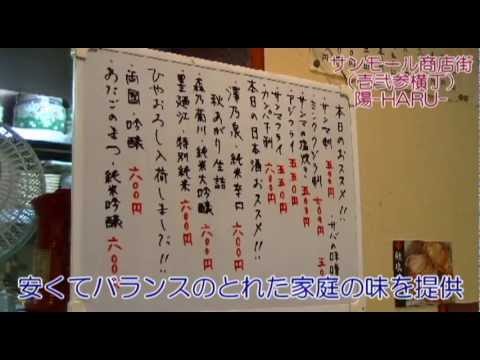 サンモール商店街
(壱弐参横丁)
陽-HARU-
本日のおススメ!!
・サンマ刺 五〇〇円
・サバの味噌
・ミンククジラ刺 七〇〇円
・サンマの塩焼き
・アジフライ 五五〇円
・サンマフライ 五五〇円
六〇〇円
本日の日本酒おススメ!!
・澤乃泉・純米辛口 六〇〇円
秋あがり 生詰
・森乃菊川・純米大吟醸 六〇〇円
・墨廼江・特別純米 六〇〇円
ひやおろし入荷しました!!
・両國・吟醸 六〇〇円
・あたごのまつ・純米吟醸 六〇〇円
安くてバランスのとれた家庭の味を提供